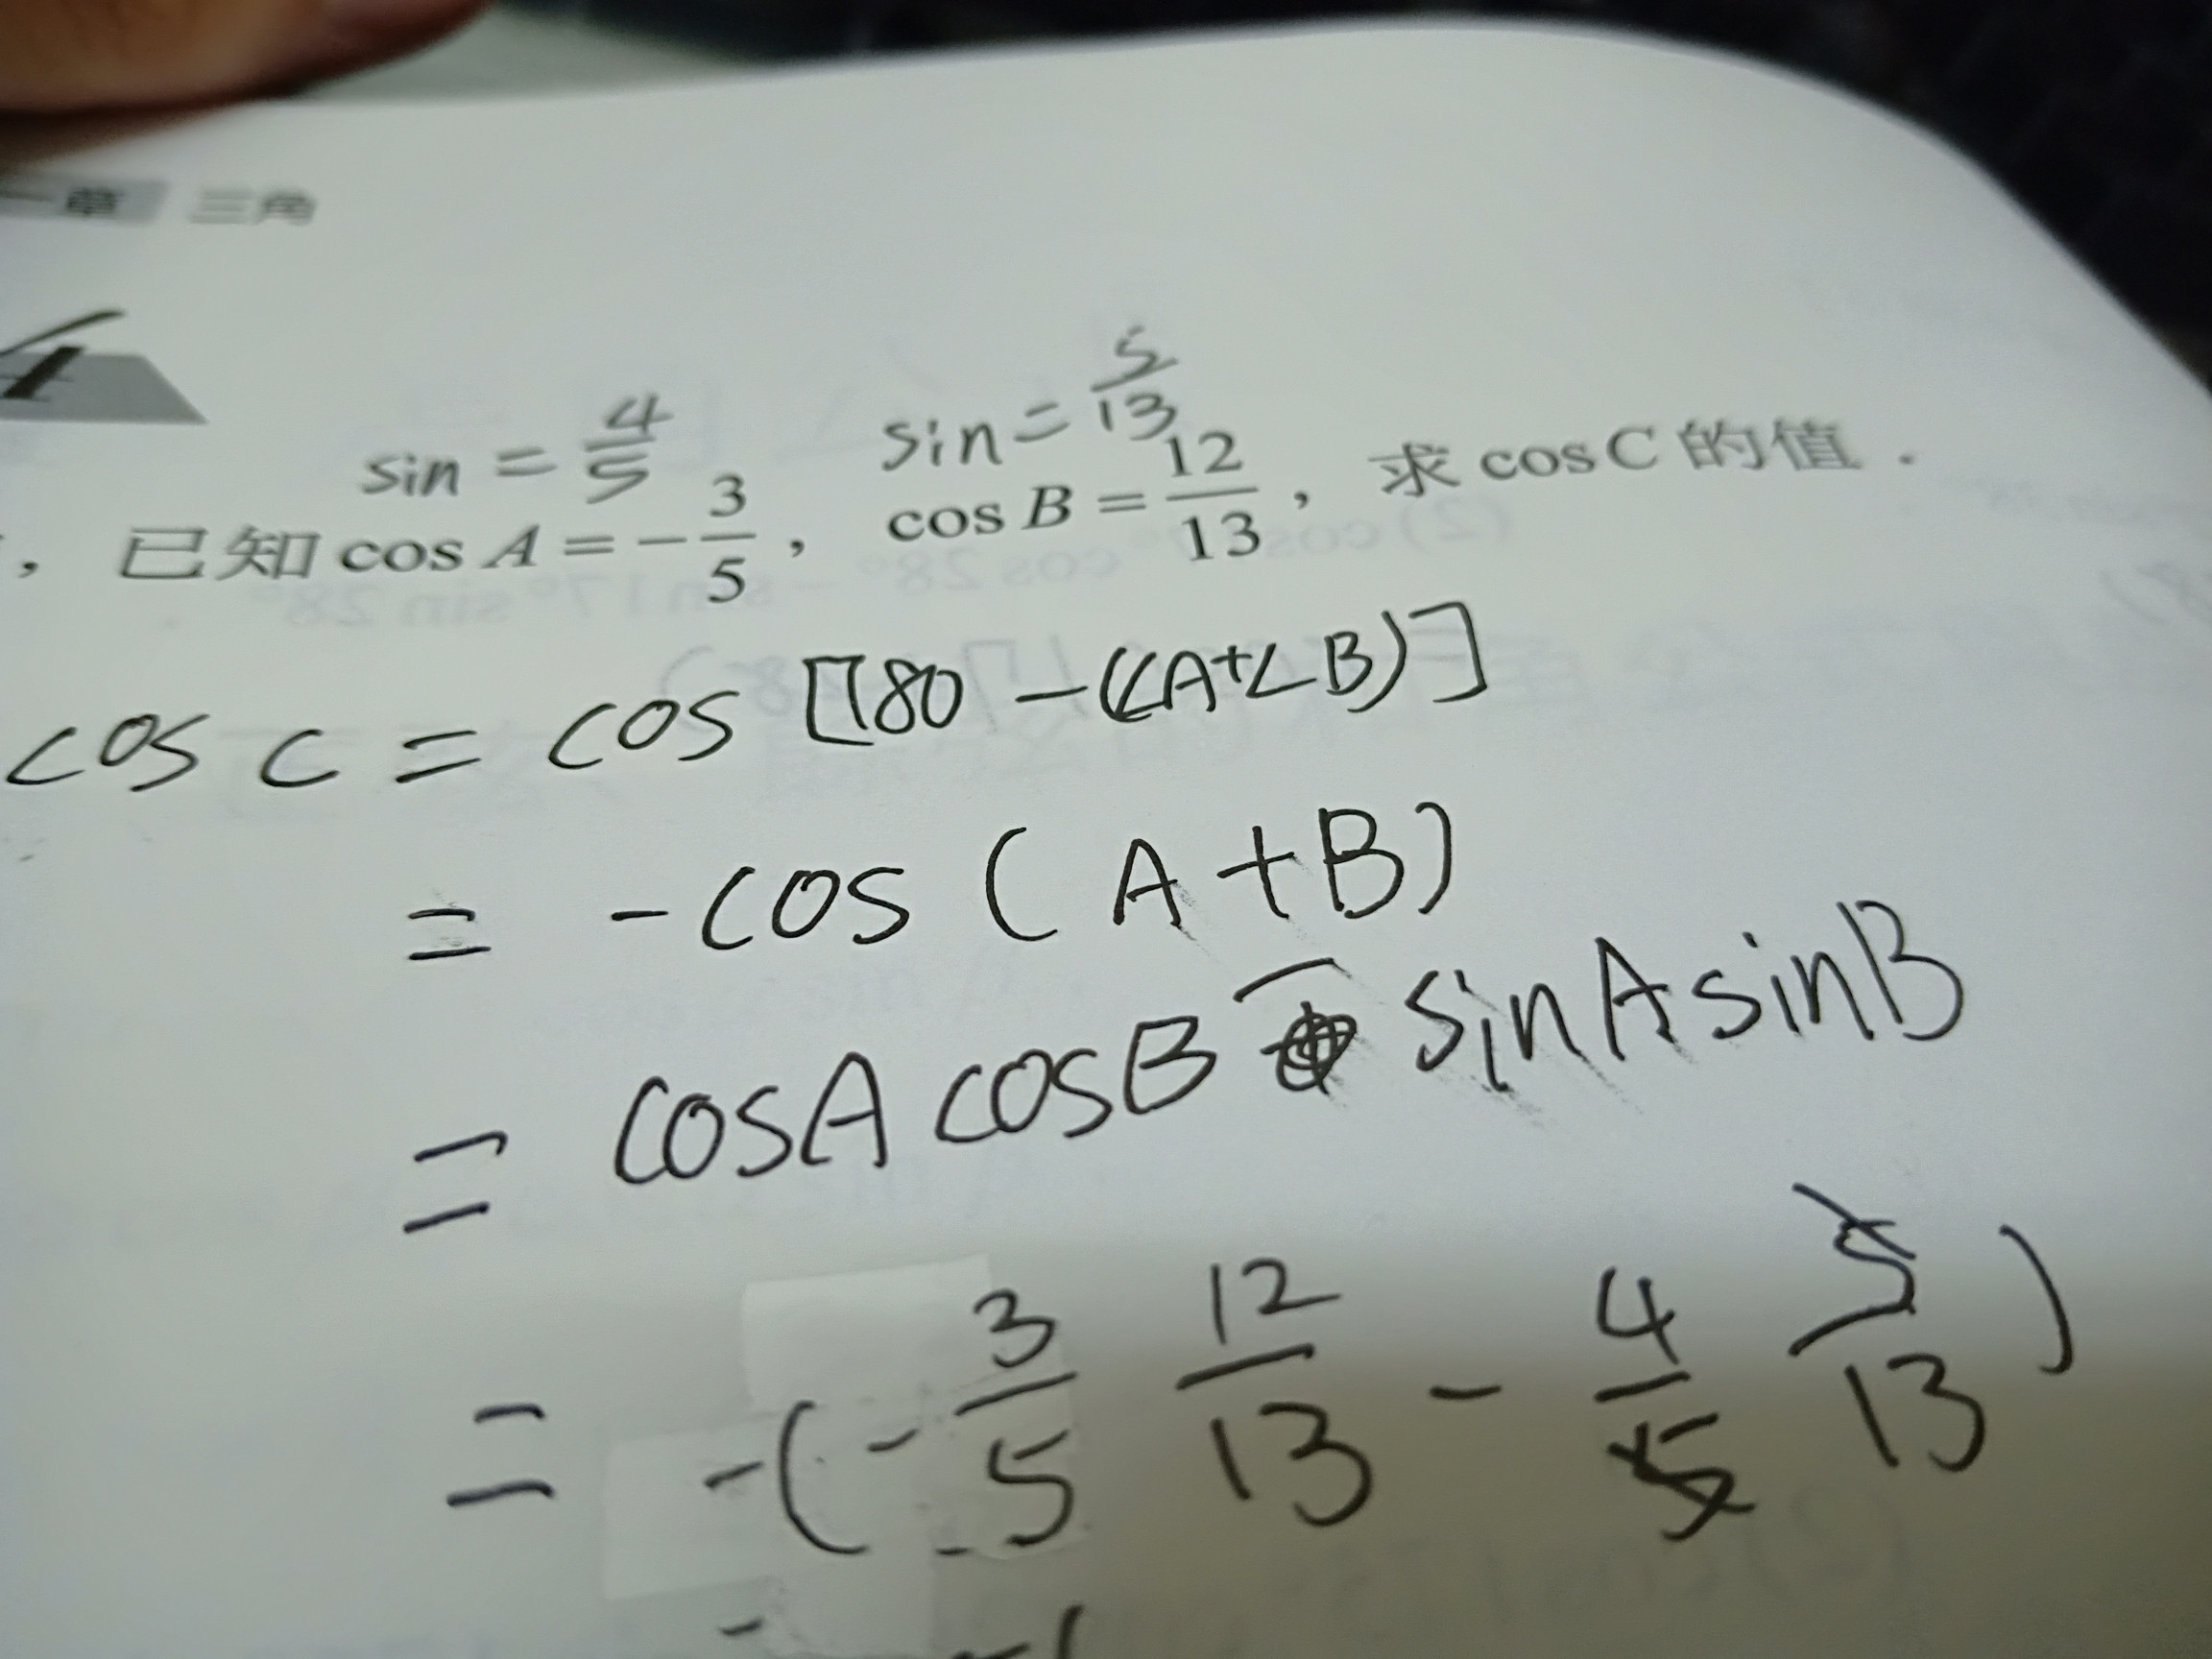 一章 三角
4
sin = 4/5 sin = 5/13
, 已知 cos A = -3/5, cos B = 12/13, 求 cos C 的值.
cos C = cos [180 - (∠A+∠B)]
= -cos (A+B)
= cosA cosB - sinA sinB
= -(-3/5 12/13 - 4/5 5/13)